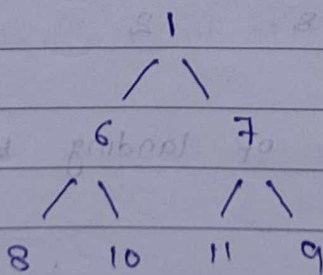 1
6 7
8 10 11 9